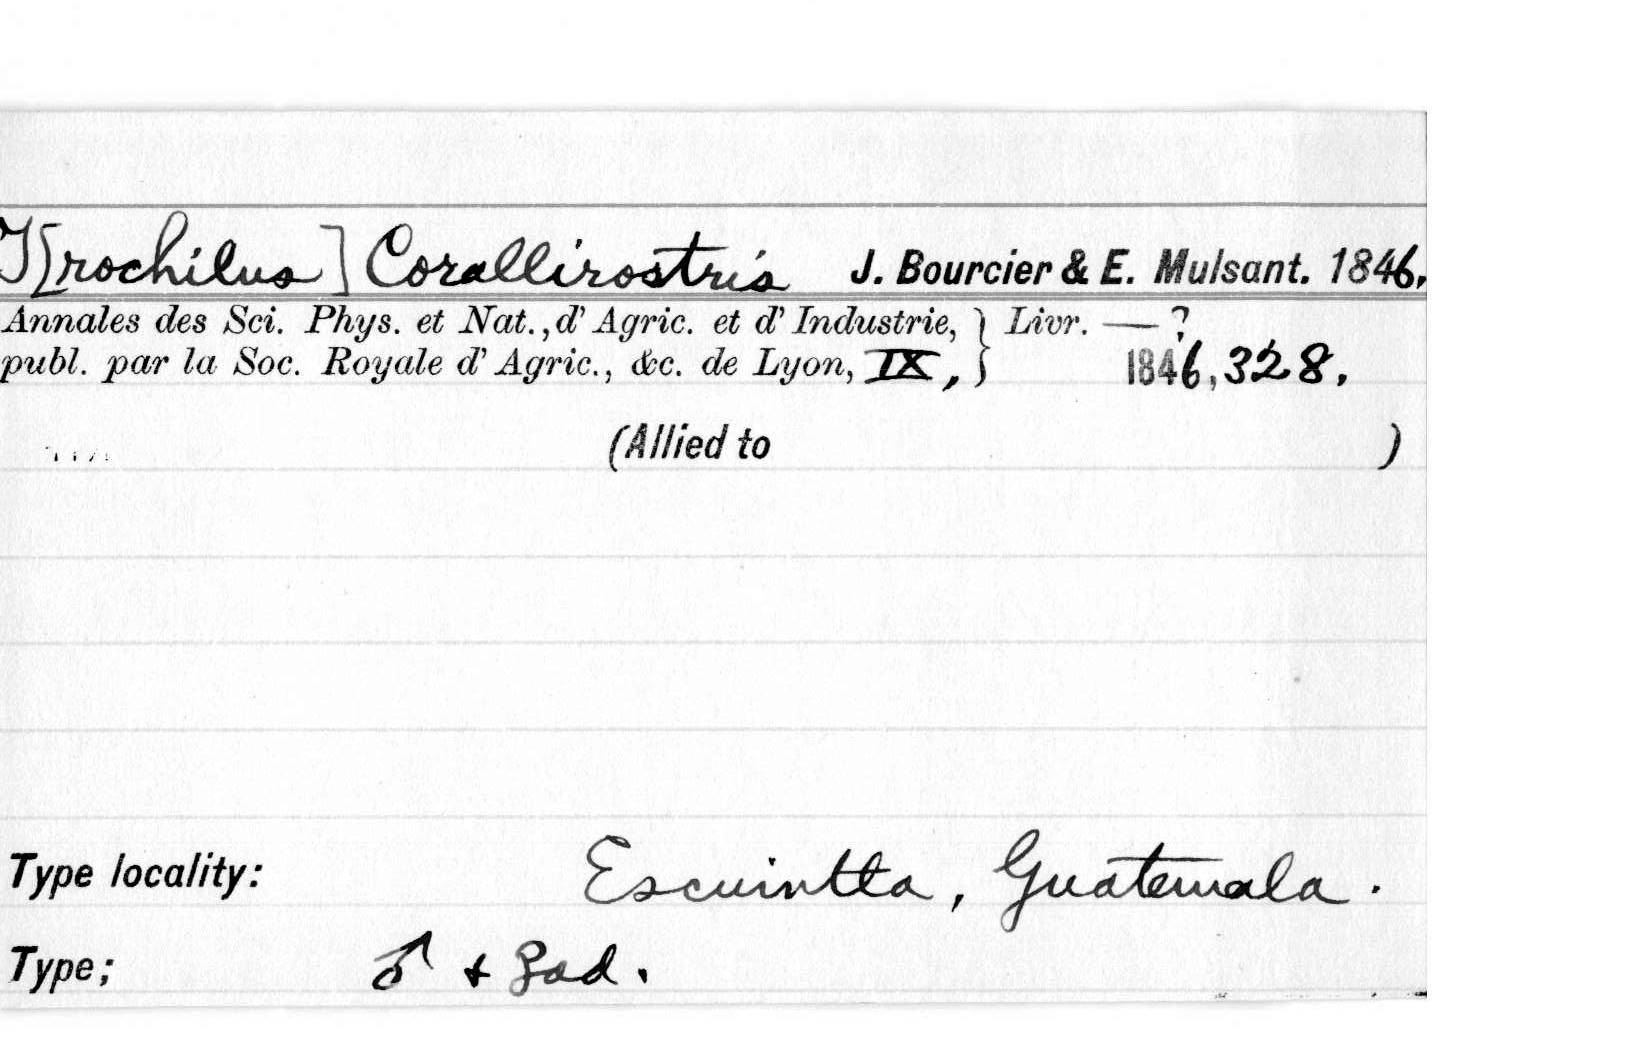 T[rochilus] Corallirostris J. Bourcier & E. Mulsant. 1846,
Annales des Sci. Phys. et Nat., d'Agric. et d'Industrie, } Livr. — ?
publ. par la Soc. Royale d'Agric., &c. de Lyon, IX, } 1846, 328.
(Allied to )
Type locality: Escuintla, Guatemala.
Type; ♂ + ♀ ad.